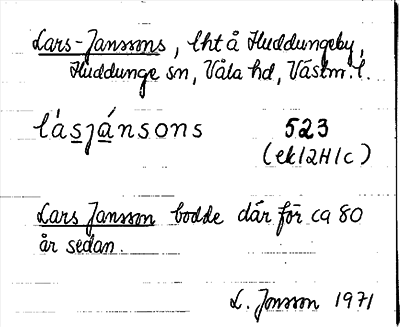 Lars-Janssons, lht å Huddungeby,
Huddunge sn, Våla hd, Västm. l.
lásjánsons 523
(ek12H1c)
Lars Jansson bodde där för ca 80
år sedan.
L. Jonsson 1971